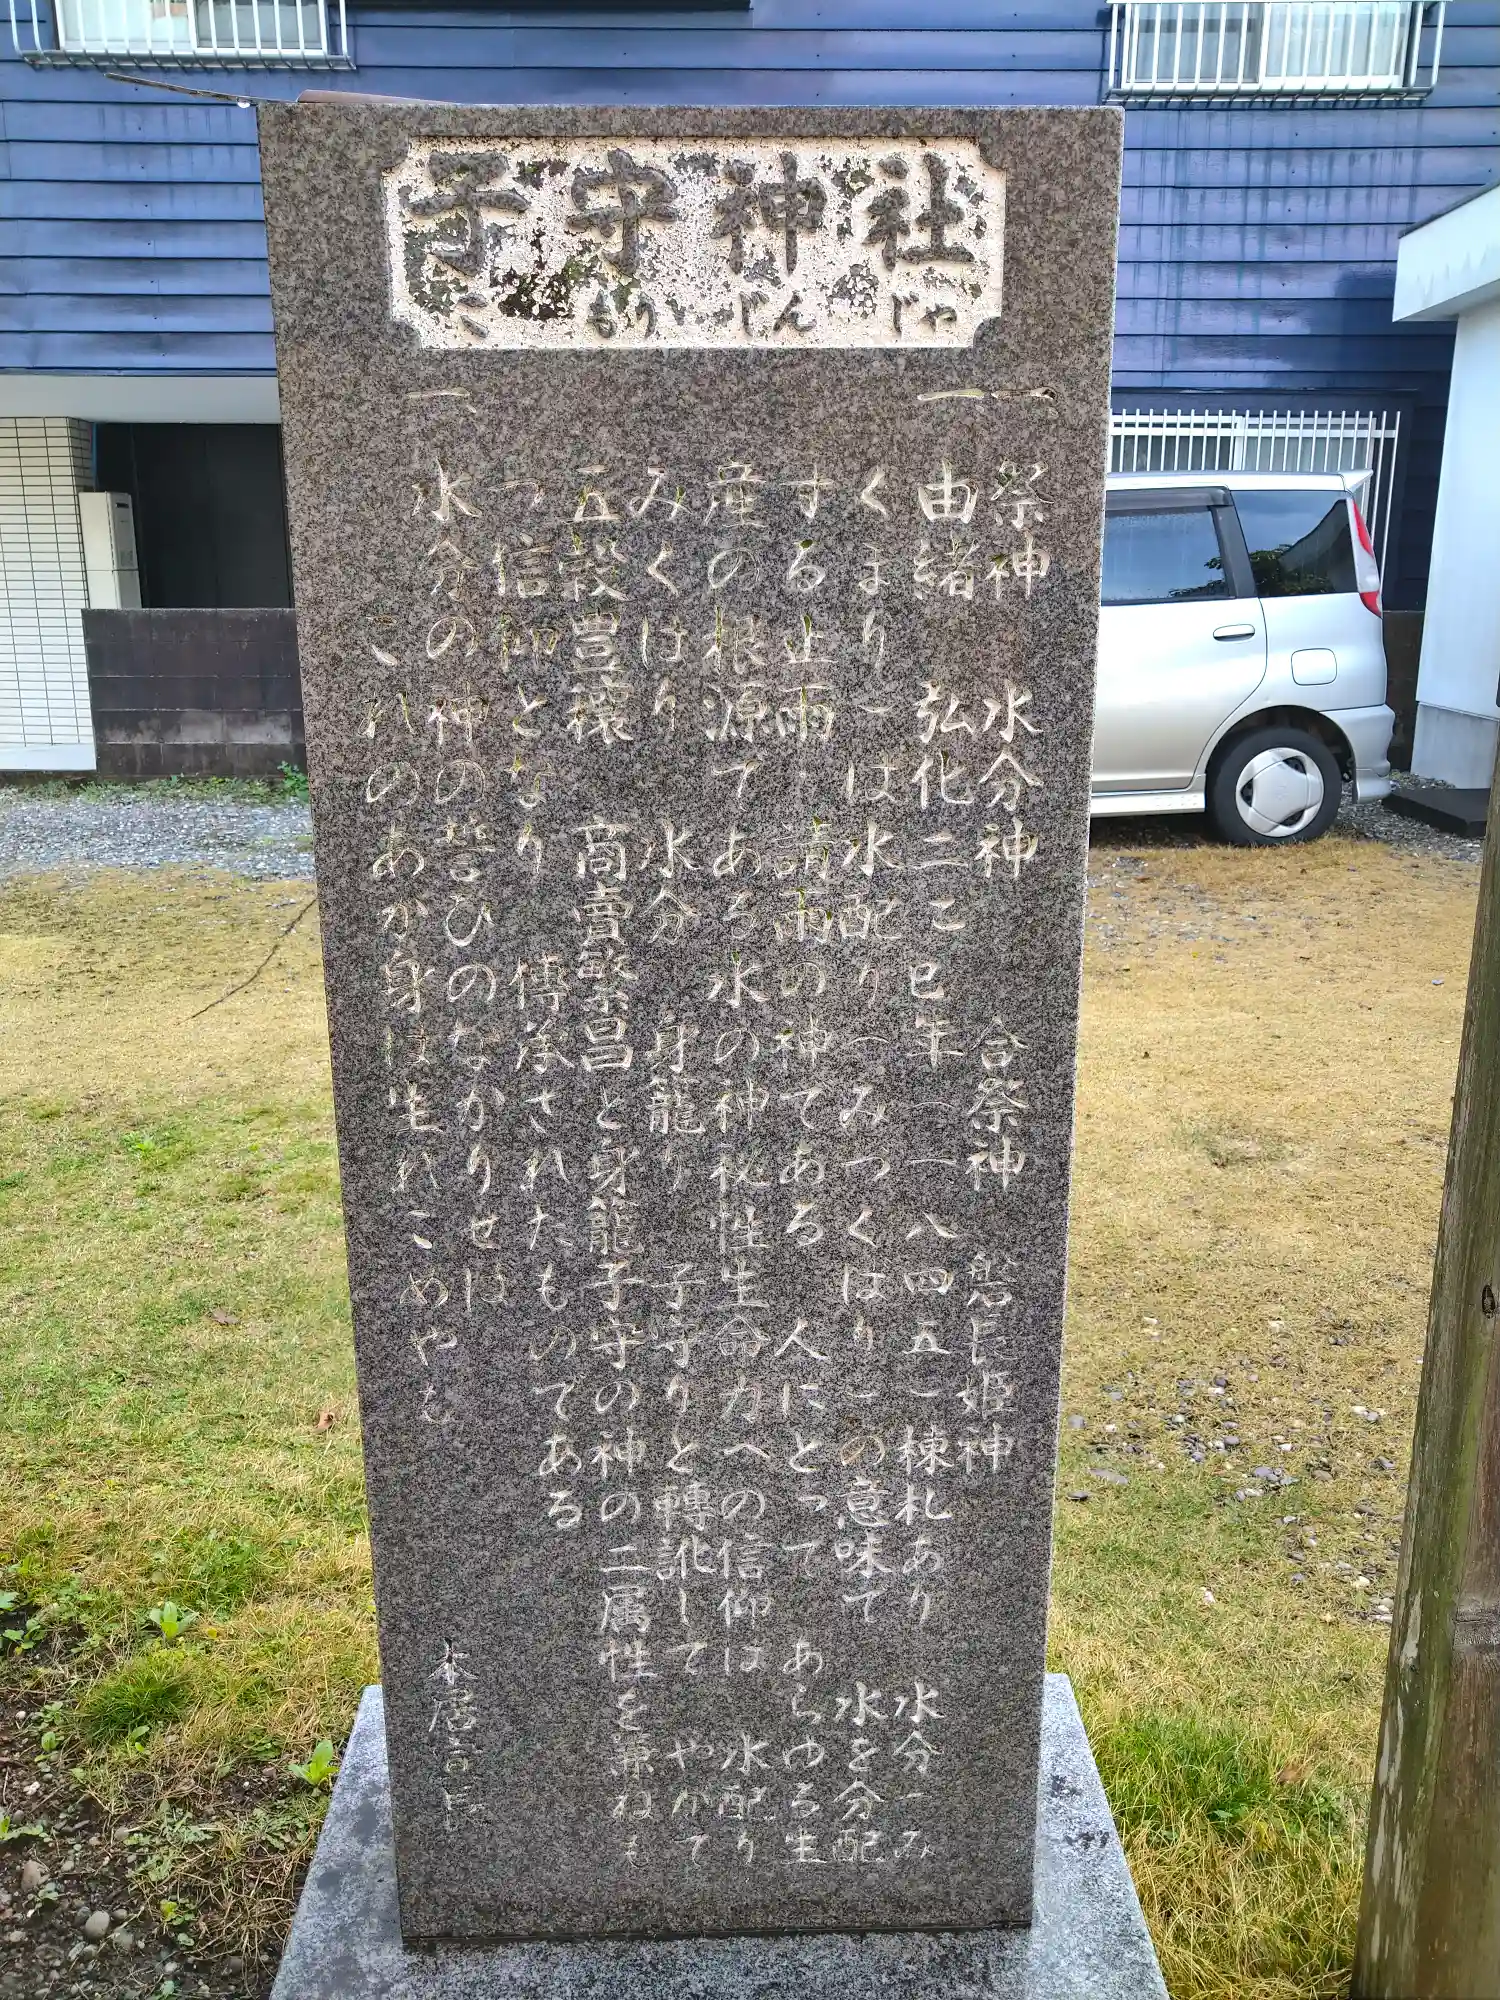 子守神社
こもりじんじゃ
一 祭神 水分神 合祭神 磐長姫神
一 由緒 弘化二乙巳年(一八四五)棟札あり 水分(み
くまり)は水配り(みづくばり)の意味で 水を分配
する止雨・請雨の神である 人にとって あらゆる生
産の根源である水の神秘性生命力への信仰は 水配り
みくばり 水分 身籠り 子守りと轉訛して やがて
五穀豊穰 商賣繁昌と身籠子守の神の二属性を兼ねも
つ信仰となり 傳承されたものである
一 水分の神の誓ひのなかりせば
これのあが身は生れこめやも
本居宣長